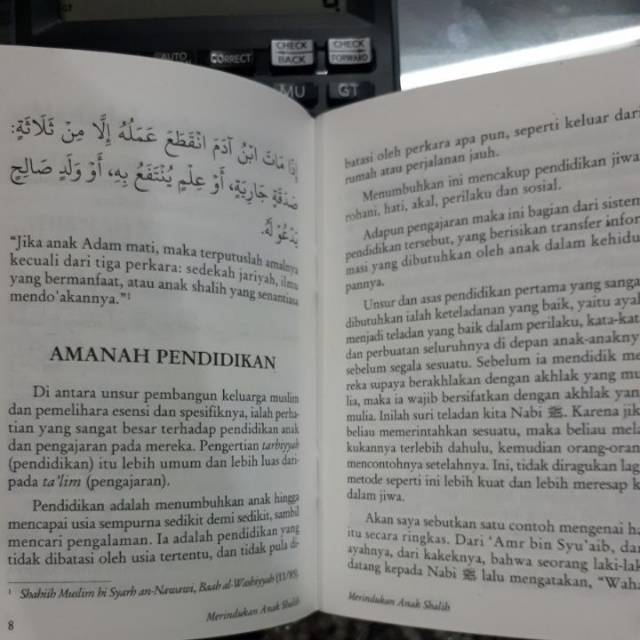 AUTO
CORRECT
CHECK
BACK
CHECK
FORWARD
MU
GT
إِذَا مَاتَ ابْنُ آدَمَ انْقَطَعَ عَمَلُهُ إِلَّا مِنْ ثَلَاثَةٍ:
صَدَقَةٍ جَارِيَةٍ، أَوْ عِلْمٍ يُنْتَفَعُ بِهِ، أَوْ وَلَدٍ صَالِحٍ
يَدْعُو لَهُ.
“Jika anak Adam mati, maka terputuslah amalnya
kecuali dari tiga perkara: sedekah jariyah, ilmu
yang bermanfaat, atau anak shalih yang senantiasa
mendo'akannya.”¹
AMANAH PENDIDIKAN
Di antara unsur pembangun keluarga muslim
dan pemelihara esensi dan spesifiknya, ialah perha-
tian yang sangat besar terhadap pendidikan anak
dan pengajaran pada mereka. Pengertian tarbiyyah
(pendidikan) itu lebih umum dan lebih luas dari-
pada ta'lim (pengajaran).
Pendidikan adalah menumbuhkan anak hingga
mencapai usia sempurna sedikit demi sedikit, sambil
mencari pengalaman. Ia adalah pendidikan yang
tidak dibatasi oleh usia tertentu, dan tidak pula di-
¹ Shahiih Muslim bi Syarh an-Nawawi, Baab al-Washiyyah (11/85).
8
Merindukan Anak Shalih
batasi oleh perkara apa pun, seperti keluar dari
rumah atau perjalanan jauh.
Menumbuhkan ini mencakup pendidikan jiwa,
rohani, hati, akal, perilaku dan sosial.
Adapun pengajaran maka ini bagian dari sistem
pendidikan tersebut, yang berisikan transfer infor
masi yang dibutuhkan oleh anak dalam kehidu
pannya.
Unsur dan asas pendidikan pertama yang sanga
dibutuhkan ialah keteladanan yang baik, yaitu aya
menjadi teladan yang baik dalam perilaku, kata-kat
dan perbuatan seluruhnya di depan anak-anakny
sebelum segala sesuatu. Sebelum ia mendidik me
reka supaya berakhlakan dengan akhlak yang mu
lia, maka ia wajib bersifatkan dengan akhlak yan
mulia. Inilah suri teladan kita Nabi ﷺ. Karena jik
beliau memerintahkan sesuatu, maka beliau mela
kukannya terlebih dahulu, kemudian orang-oran
mencontohnya setelahnya. Ini, tidak diragukan lag
metode seperti ini lebih kuat dan lebih meresap k
dalam jiwa.
Akan saya sebutkan satu contoh mengenai ha
itu secara ringkas. Dari 'Amr bin Syu'aib, da
ayahnya, dari kakeknya, bahwa seorang laki-lak
datang kepada Nabi ﷺ lalu mengatakan, “Waha
Merindukan Anak Shalih